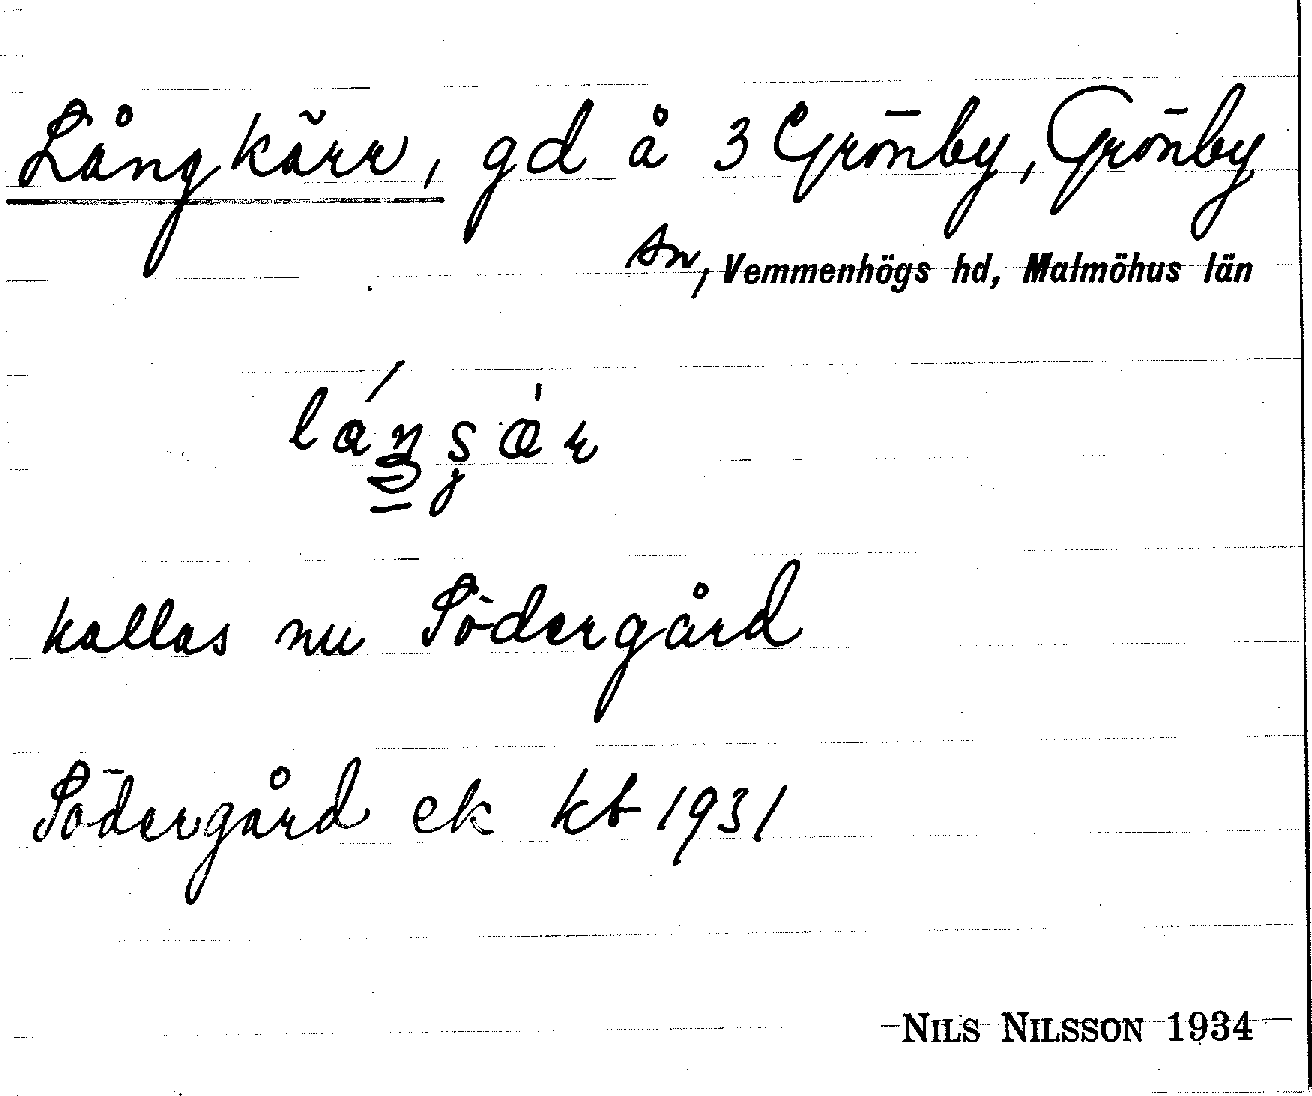 Långkärr, gd å 3 Grönby, Grönby
sn, Vemmenhögs hd, Malmöhus län
kallas nu Södergård
Södergård ek kb 1931
NILS NILSSON 1934